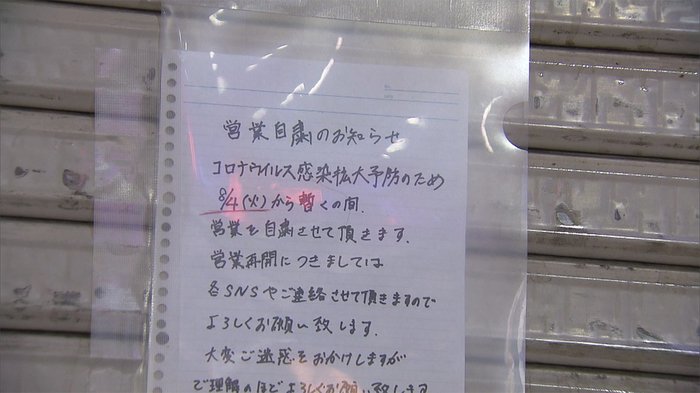 営業自粛のお知らせ
コロナウイルス感染拡大予防のため
8/4(火)から暫くの間、
営業を自粛させて頂きます。
営業再開につきましては
各SNSやご連絡させて頂きますので
よろしくお願い致します。
大変ご迷惑をおかけしますが
ご理解のほどよろしくお願い致します